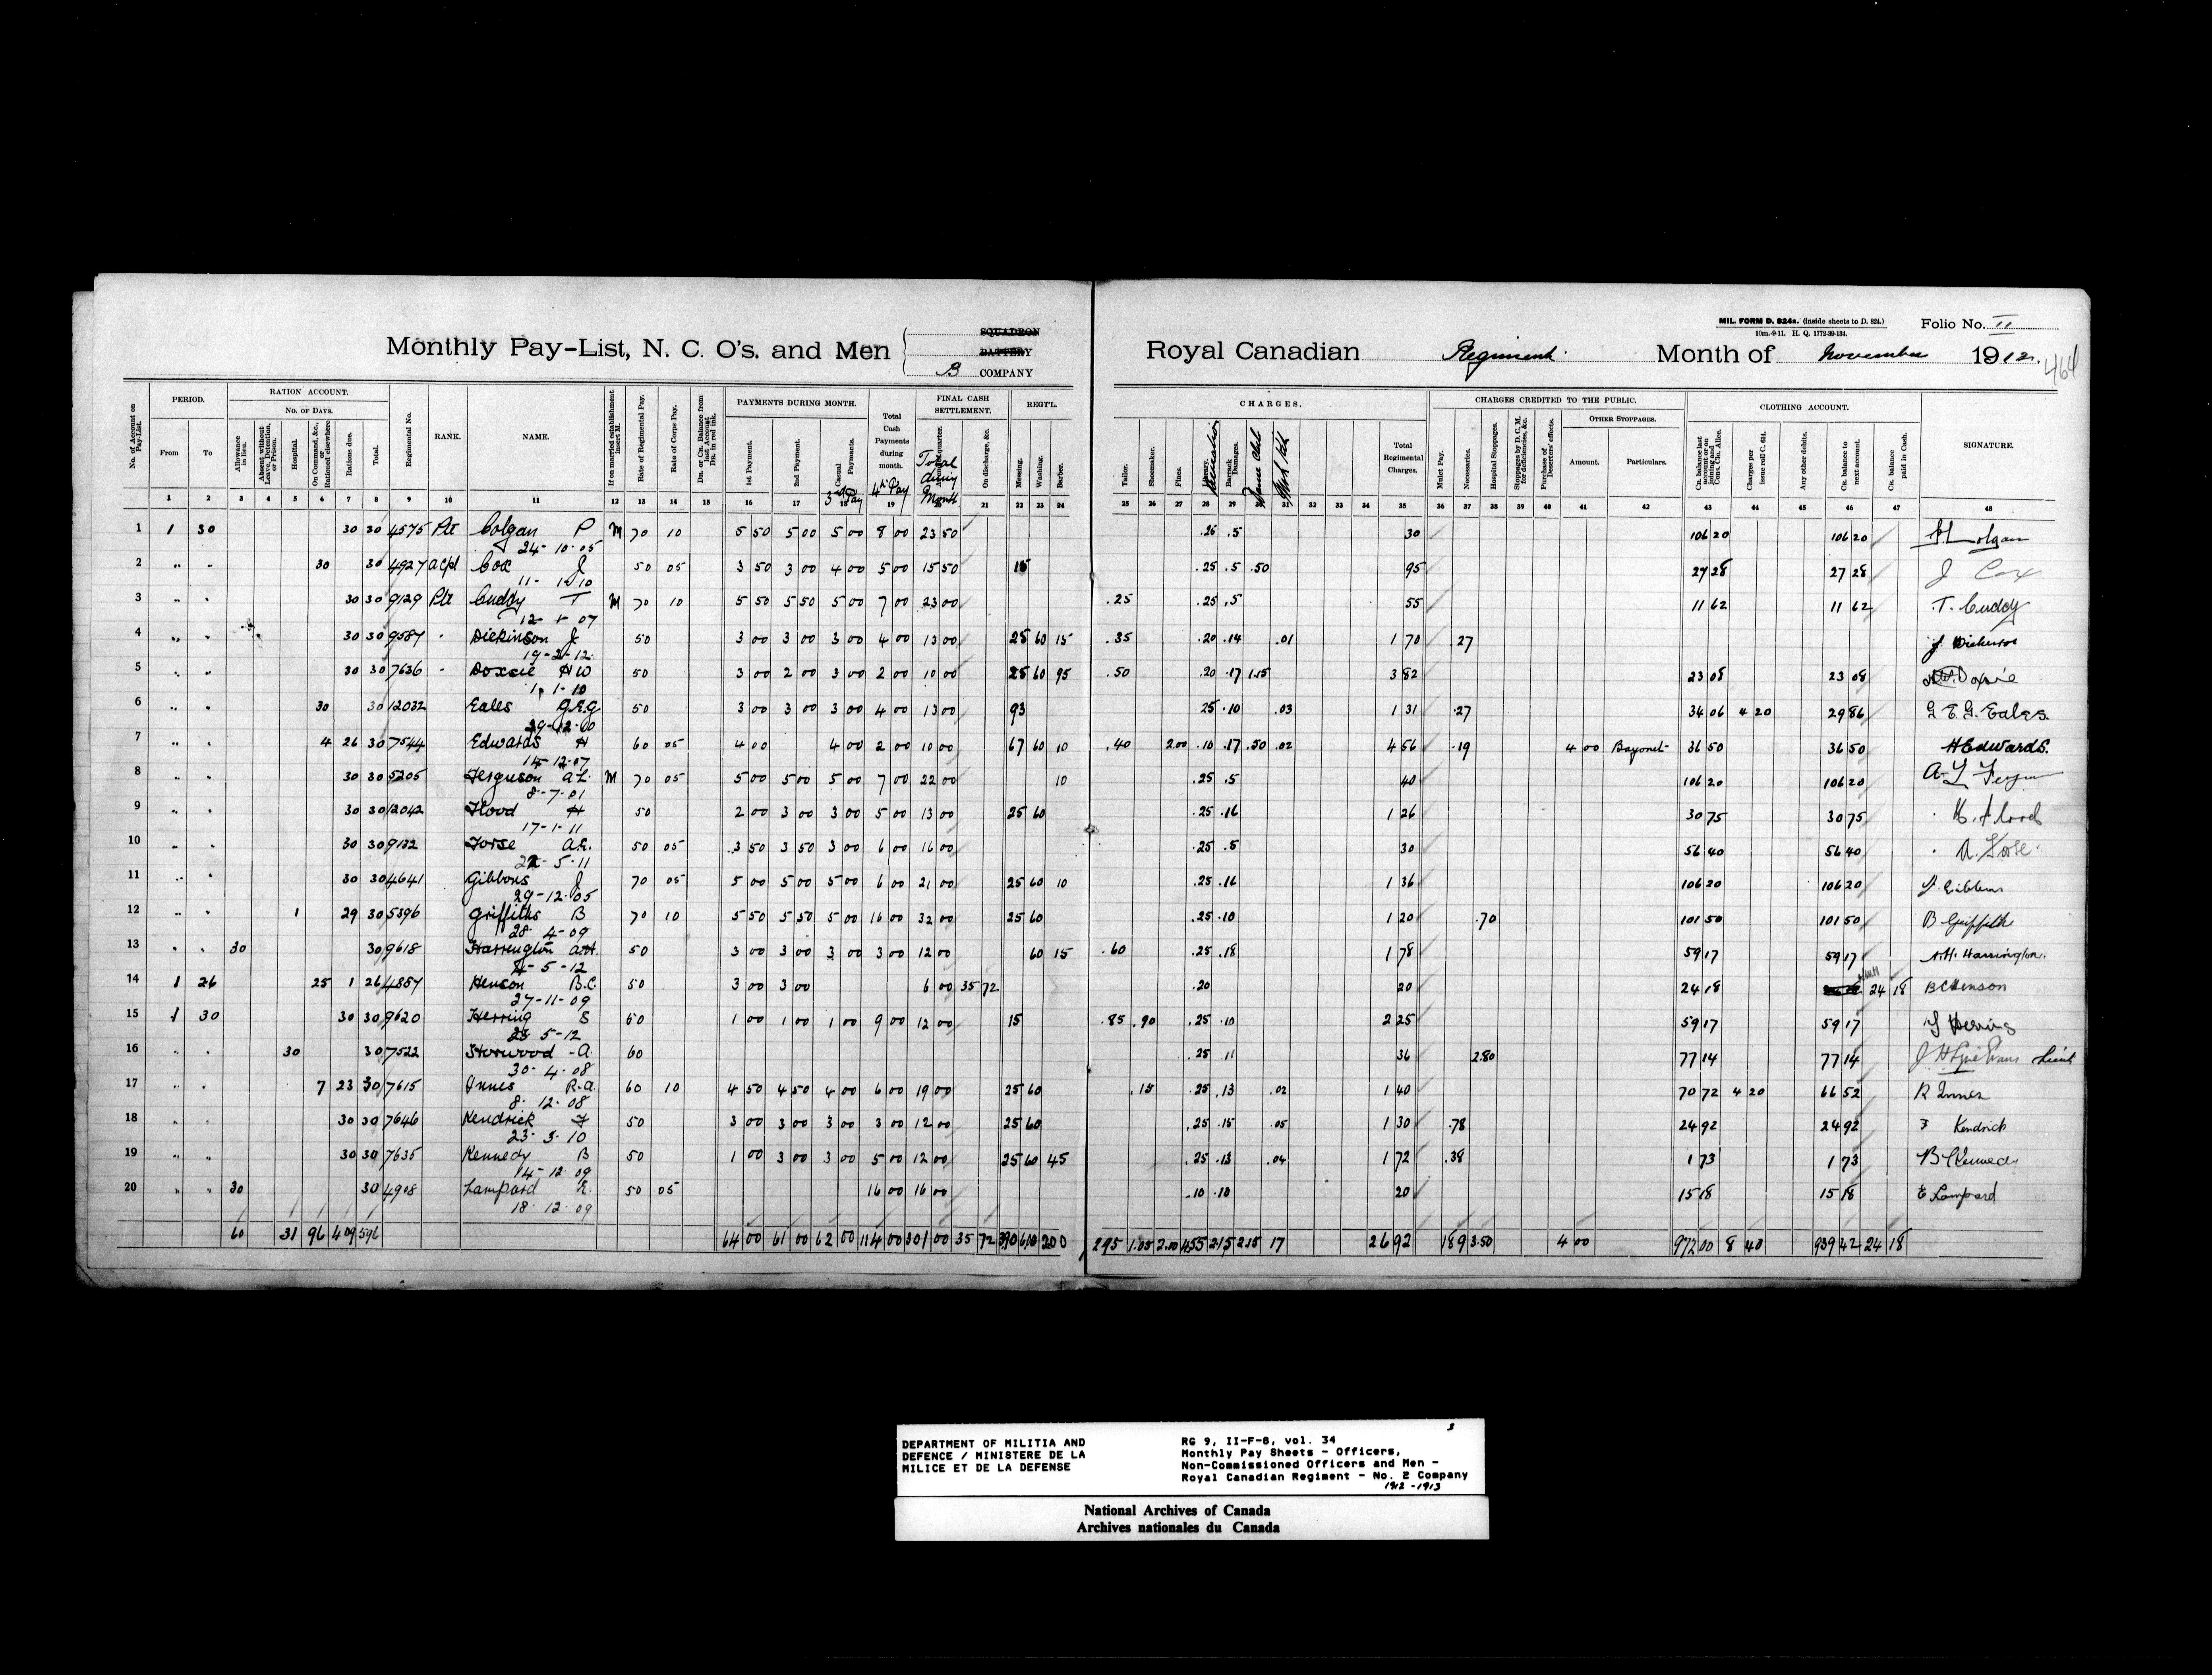 MIL. FORM D. 824a. (inside sheets to D. 824.)
10m.-9-11. H. Q. 1772-39-134.
Folio No. II
464
Monthly Pay-List, N. C. O's. and Men
SQUADRON
BATTERY
B COMPANY
Royal Canadian Regiment. Month of November 1912.
No. of Account on Pay-List.
PERIOD.
From To
RATION ACCOUNT.
No. of Days.
Allowance in lieu.
Absent without Leave, Detention, or Prison.
Hospital.
On Command, &c., or Rationed elsewhere
Rations due.
Total.
Regimental No.
RANK.
NAME.
If on married establishment insert M.
Rate of Regimental Pay.
Rate of Corps Pay.
Dr. or Cr. Balance from last Account Dr. in red ink.
PAYMENTS DURING MONTH.
1st Payment.
2nd Payment.
Casual Payments.
3rd Pay
Total Cash Payments during month.
4th Pay
FINAL CASH SETTLEMENT.
Total during Month
On discharge, &c.
REGT'L.
Messing.
Washing.
Barber.
CHARGES.
Tailor.
Shoemaker.
Fines.
Library.
Barrack Damages.
Total Regimental Charges.
CHARGES CREDITED TO THE PUBLIC.
Mulct Pay.
Necessaries.
Hospital Stoppages.
Stoppages by D.C.M. for deficiencies, &c.
Purchase of Deserters' effects.
OTHER STOPPAGES.
Amount.
Particulars.
CLOTHING ACCOUNT.
Cr. balance last account or on joining and Cons. Clo. Allce.
Charges per issue roll C. 614.
Any other debits.
Cr. balance to next account.
Cr. balance paid in Cash.
SIGNATURE.
1 2 3 4 5 6 7 8 9 10 11 12 13 14 15 16 17 18 19 20 21 22 23 24 25 26 27 28 29 30 31 32 33 34 35 36 37 38 39 40 41 42 43 44 45 46 47 48
1 1 30 30 30 4575 Pte Colgan P M 70 10 5 50 5 00 5 00 8 00 23 50 .26 .5 30 106 20 106 20
24-10-05
2 " " 30 30 4927 a/cpl Cox J 50 05 3 50 3 00 4 00 5 00 15 50 15 .25 .5 .50 95 27 28 27 28 J Cox
3 " " 30 30 9129 Pte Cuddy T M 70 10 5 50 5 50 5 00 7 00 23 00 .25 .25 .5 55 11 62 11 62 T. Cuddy
12-1-07
4 " " 30 30 9587 " Dickinson J 50 3 00 3 00 3 00 4 00 13 00 25 60 15 .35 .20 .14 .01 1 70 .27
19-2-12
5 " " 30 30 7636 " Doxsie H W 50 3 00 2 00 3 00 2 00 10 00 25 60 95 .50 .20 .17 1.15 3 82 23 08 23 08
1-1-10
6 " " 30 30 12032 Eales G.E.G 50 3 00 3 00 3 00 4 00 13 00 93 .25 .10 .03 1 31 .27 34 06 4 20 29 86 G E. G. Eales.
29-12-00
7 " " 4 26 30 7544 Edwards H 60 05 4 00 4 00 2 00 10 00 67 60 10 .40 2.00 .10 .17 .50 .02 4 56 .19 4 00 Bayonet 36 50 36 50 H Edwards.
14-12-07
8 " " 30 30 5205 Ferguson A.L. M 70 05 5 00 5 00 5 00 7 00 22 00 10 .25 .5 40 106 20 106 20
8-7-01
9 " " 30 30 12042 Flood H 50 2 00 3 00 3 00 5 00 13 00 25 60 .25 .16 1 26 30 75 30 75 H. Flood
17-1-11
10 " " 30 30 9132 Forse A.E. 50 05 3 50 3 50 3 00 6 00 16 00 .25 .5 30 56 40 56 40
5-11
11 " " 30 30 4641 Gibbons J 70 05 5 00 5 00 5 00 6 00 21 00 25 60 10 .25 .16 1 36 106 20 106 20 J. Gibbons
29-12-05
12 " " 1 29 30 5396 Griffiths B 70 10 5 50 5 50 5 00 16 00 32 00 25 60 .25 .10 1 20 .70 101 50 101 50 B Griffith
28-4-09
13 " " 30 30 9618 Harrington A.H. 50 3 00 3 00 3 00 3 00 12 00 60 15 .60 .25 .18 1 78 59 17 59 17 A.H. Harrington.
5-12
14 1 26 25 1 26 4857 Henson B.C. 50 3 00 3 00 6 00 35 72 .20 20 24 18 24 18 B C Henson
27-11-09
15 1 30 30 30 9620 Herring S 50 1 00 1 00 1 00 9 00 12 00 15 .85 .90 .25 .10 2 25 59 17 59 17 S Herring
5-12
16 " " 30 30 7522 Horwood A. 60 .25 11 36 2.80 77 14 77 14 Lieut
30-4-08
17 " " 7 23 30 7615 Innes R.A. 60 10 4 50 4 50 4 00 6 00 19 00 25 60 .15 .25 .13 .02 1 40 70 72 4 20 66 52 R Innes
8-12-08
18 " " 30 30 7646 Kendrick F 50 3 00 3 00 3 00 3 00 12 00 25 60 .25 .15 .05 1 30 .78 24 92 24 92 F Kendrick
23-3-10
19 " " 30 30 7635 Kennedy B 50 1 00 3 00 3 00 5 00 12 00 25 60 45 .25 .13 .04 1 72 .38 1 73 1 73 B Kennedy
14-12-09
20 " " 30 30 4908 Lampard E. 50 05 16 00 16 00 .10 .10 20 15 18 15 18 E Lampard
18-12-09
60 31 96 409 596 64 00 61 00 62 00 114 00 301 00 35 72 390 610 200 295 1.05 2.00 455 215 2.15 17 26 92 189 3.50 4 00 972 00 8 40 939 42 24 18
3
DEPARTMENT OF MILITIA AND
DEFENCE / MINISTERE DE LA
MILICE ET DE LA DEFENSE
RG 9, II-F-8, vol. 34
Monthly Pay Sheets - Officers,
Non-Commissioned Officers and Men -
Royal Canadian Regiment - No. 2 Company
1912 - 1913
National Archives of Canada
Archives nationales du Canada